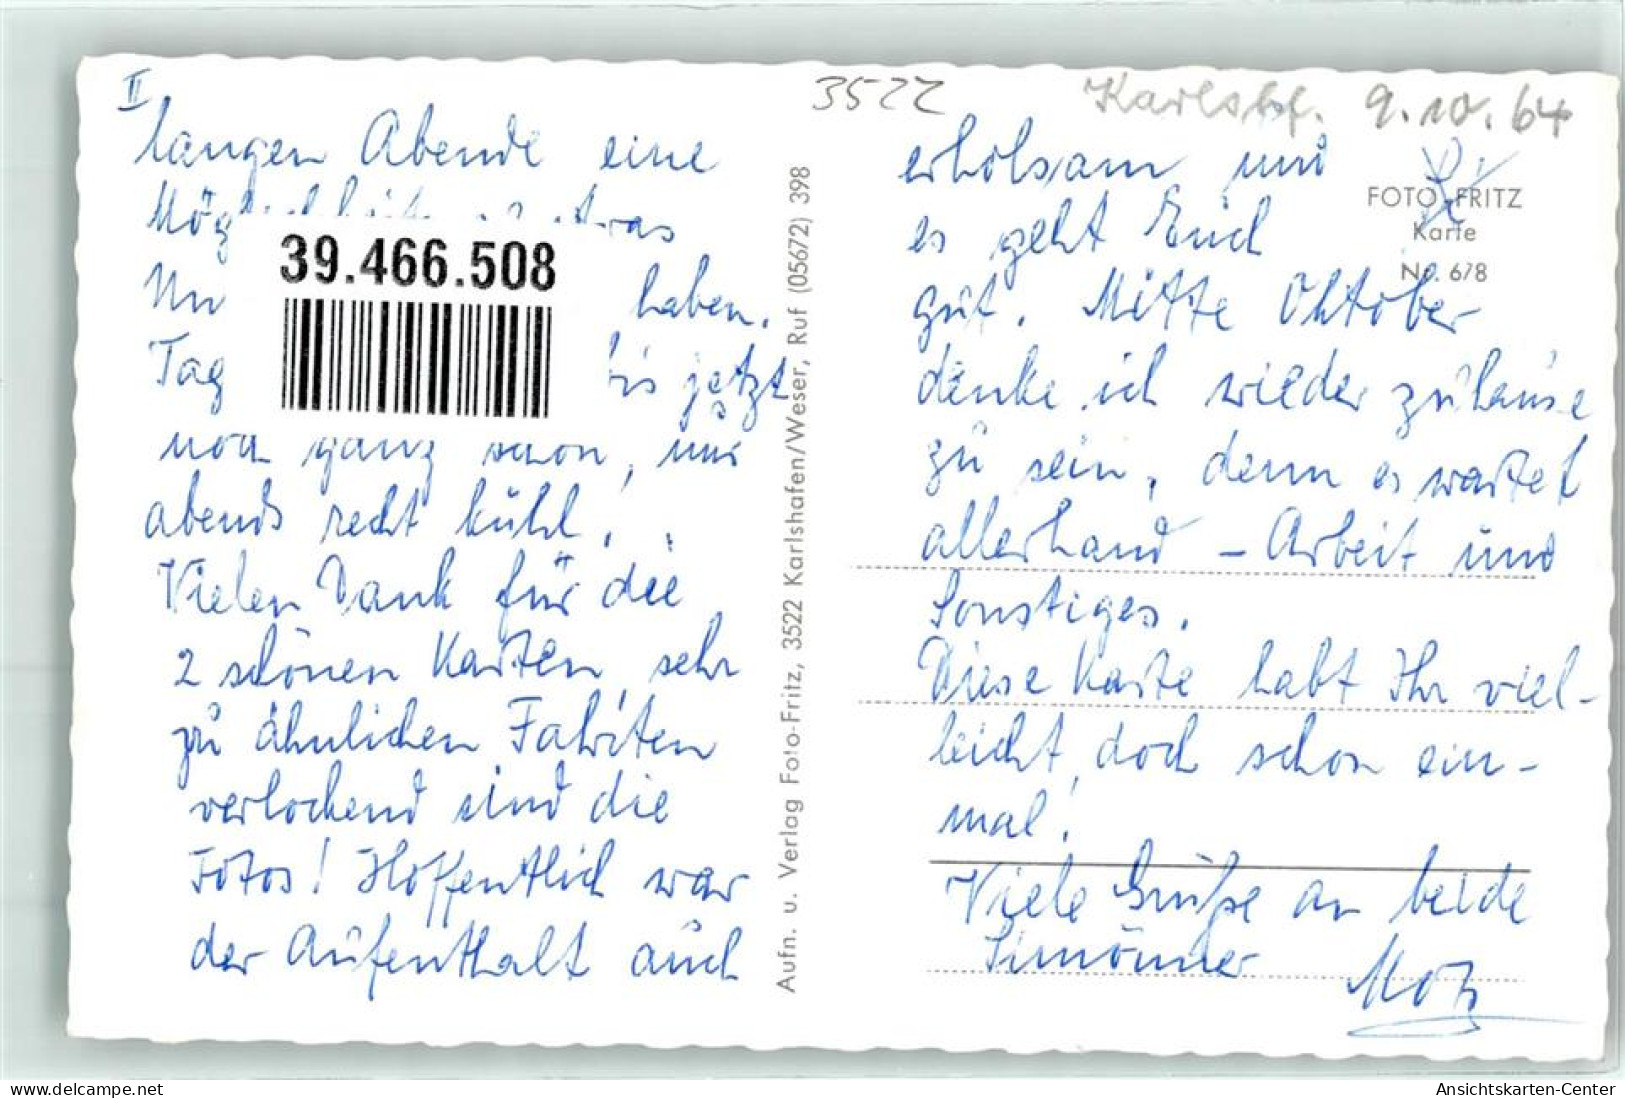 II
langen Abende eine
39.466.508
haben.
Tag bis jetzt
noch ganz schon, nur
abends recht kühl.
Vielen Dank für die
2 schönen Karten, sehr
zu ähnlichen Fahrten
verlockend sind die
Fotos! Hoffentlich war
der Aufenthalt auch
Aufn. u. Verlag Foto-Fritz, 3522 Karlshafen/Weser, Ruf (05672) 398
3522
9.10.64
erholsam und
es geht Euch
gut. Mitte Oktober
denke ich wieder zuhause
zu sein, denn es wartet
allerhand – Arbeit und
Sonstiges.
Diese Karte habt Ihr viel-
leicht doch schon ein-
mal!
Viele Grüße an beide
FOTO-FRITZ
Karte
Nr. 678
delcampe.net
Ansichtskarten-Center